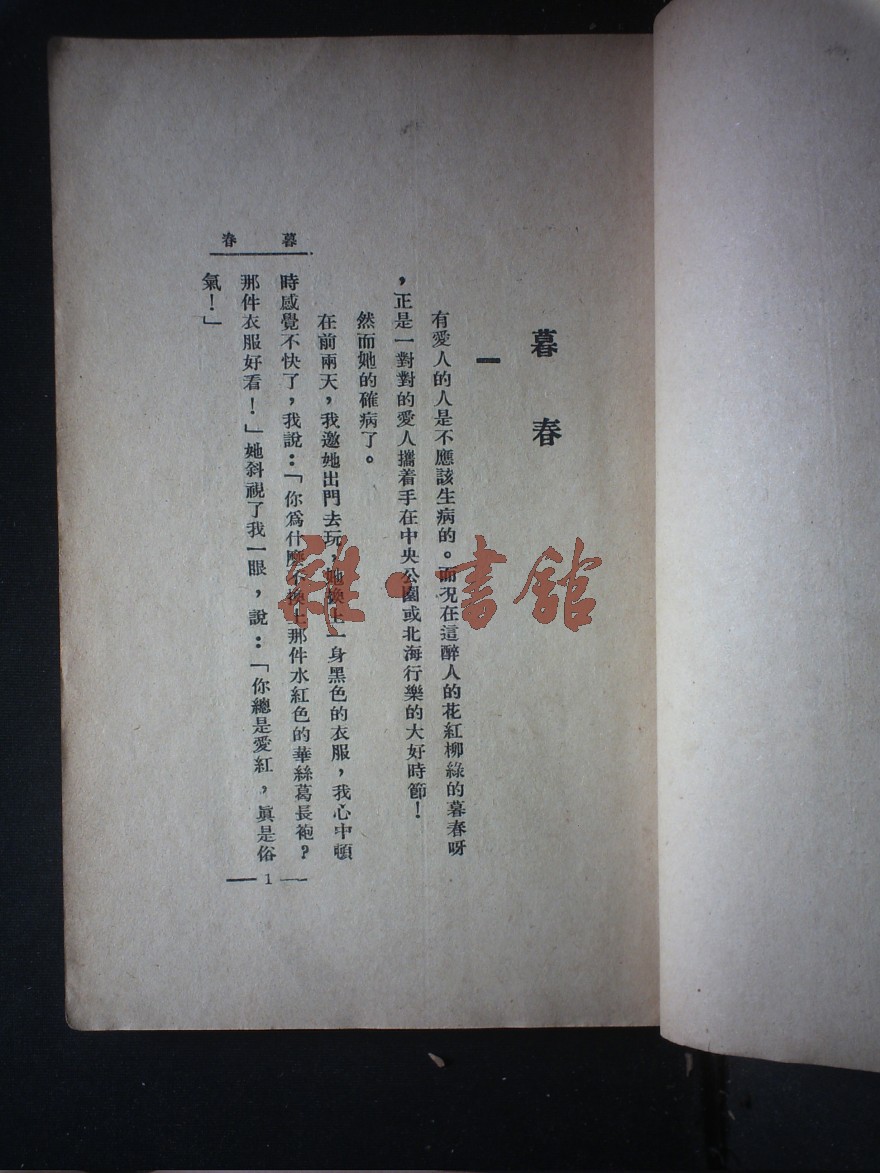 暮春
一
有愛人的人是不應該生病的。而况在這醉人的花紅柳綠的暮春呀
，正是一對對的愛人攜着手在中央公園或北海行樂的大好時節！
然而她的確病了。
在前兩天，我邀她出門去玩，她換上一身黑色的衣服，我心中頓
時感覺不快了，我說：「你爲什麼不換上那件水紅色的華絲葛長袍？
那件衣服好看！」她斜視了我一眼，說：「你總是愛紅，眞是俗
氣！」
暮春
1
雜·書館